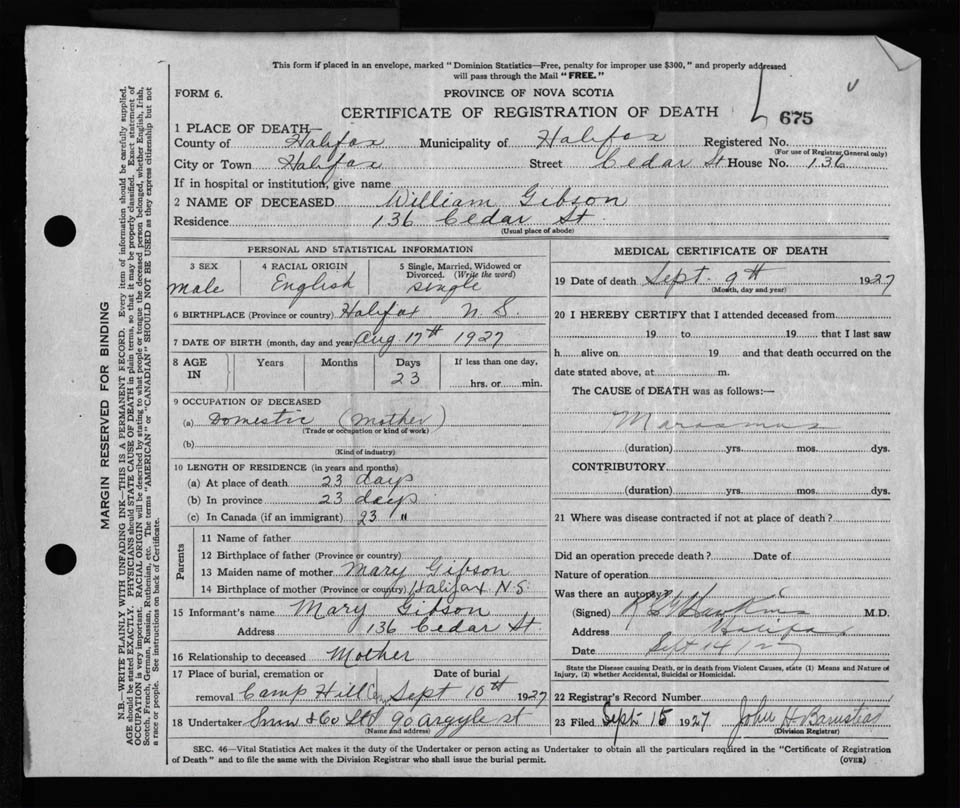 This form if placed in an envelope, marked "Dominion Statistics—Free, penalty for improper use $300," and properly addressed
will pass through the Mail "FREE."
FORM 6.
PROVINCE OF NOVA SCOTIA
CERTIFICATE OF REGISTRATION OF DEATH
675
1 PLACE OF DEATH—
County of Halifax Municipality of Halifax Registered No.
(For use of Registrar General only)
City or Town Halifax Street Cedar St House No. 136
If in hospital or institution, give name
2 NAME OF DECEASED William Gibson
Residence 136 Cedar St.
(Usual place of abode)
PERSONAL AND STATISTICAL INFORMATION
3 SEX
male
4 RACIAL ORIGIN
English
5 Single, Married, Widowed or
Divorced. (Write the word)
single
6 BIRTHPLACE (Province or country) Halifax N.S.
7 DATE OF BIRTH (month, day and year) Aug 17th 1927
8 AGE
IN
Years
Months
Days
23
If less than one day,
hrs. or min.
9 OCCUPATION OF DECEASED
(a) Domestic (Mother)
(Trade or occupation or kind of work)
(b)
(Kind of industry)
10 LENGTH OF RESIDENCE (in years and months)
(a) At place of death 23 days
(b) In province 23 days
(c) In Canada (if an immigrant) 23 "
Parents
11 Name of father
12 Birthplace of father (Province or country)
13 Maiden name of mother Mary Gibson
14 Birthplace of mother (Province or country) Halifax N.S.
15 Informant's name Mary Gibson
Address 136 Cedar St.
16 Relationship to deceased Mother
17 Place of burial, cremation or Date of burial
removal Camp Hill Cem Sept 10th 1927
18 Undertaker Snow & Co Ltd 90 Argyle St
(Name and address)
MEDICAL CERTIFICATE OF DEATH
19 Date of death Sept. 9th 1927
(Month, day and year)
20 I HEREBY CERTIFY that I attended deceased from
19 to 19 that I last saw
h alive on 19 and that death occurred on the
date stated above, at m.
The CAUSE of DEATH was as follows:—
Marasmus
(duration) yrs. mos. dys.
CONTRIBUTORY
(duration) yrs. mos. dys.
21 Where was disease contracted if not at place of death?
Did an operation precede death? Date of
Nature of operation
Was there an autopsy?
(Signed) Hawkins M.D.
Address Halifax
Date Sept 14/27
State the Disease causing Death, or in death from Violent Causes, state (1) Means and Nature of
Injury, (2) whether Accidental, Suicidal or Homicidal.
22 Registrar's Record Number
23 Filed Sept 15 1927 John H
(Division Registrar)
SEC. 46—Vital Statistics Act makes it the duty of the Undertaker or person acting as Undertaker to obtain all the particulars required in the "Certificate of Registration
of Death" and to file the same with the Division Registrar who shall issue the burial permit.
(OVER)
MARGIN RESERVED FOR BINDING
N.B.—WRITE PLAINLY WITH UNFADING INK—THIS IS A PERMANENT RECORD. Every item of information should be carefully supplied.
AGE should be stated EXACTLY. PHYSICIANS should STATE CAUSE OF DEATH in plain terms, so that it may be properly classified. Exact statement of
OCCUPATION is very important. RACIAL ORIGIN will be described by stating to what people or tongue the deceased person belonged, whether English, Irish,
Scotch, French, German, Russian, Ruthenian, etc. The terms "AMERICAN" or "CANADIAN" SHOULD NOT BE USED as they express citizenship but not
a race or people. See instructions on back of Certificate.